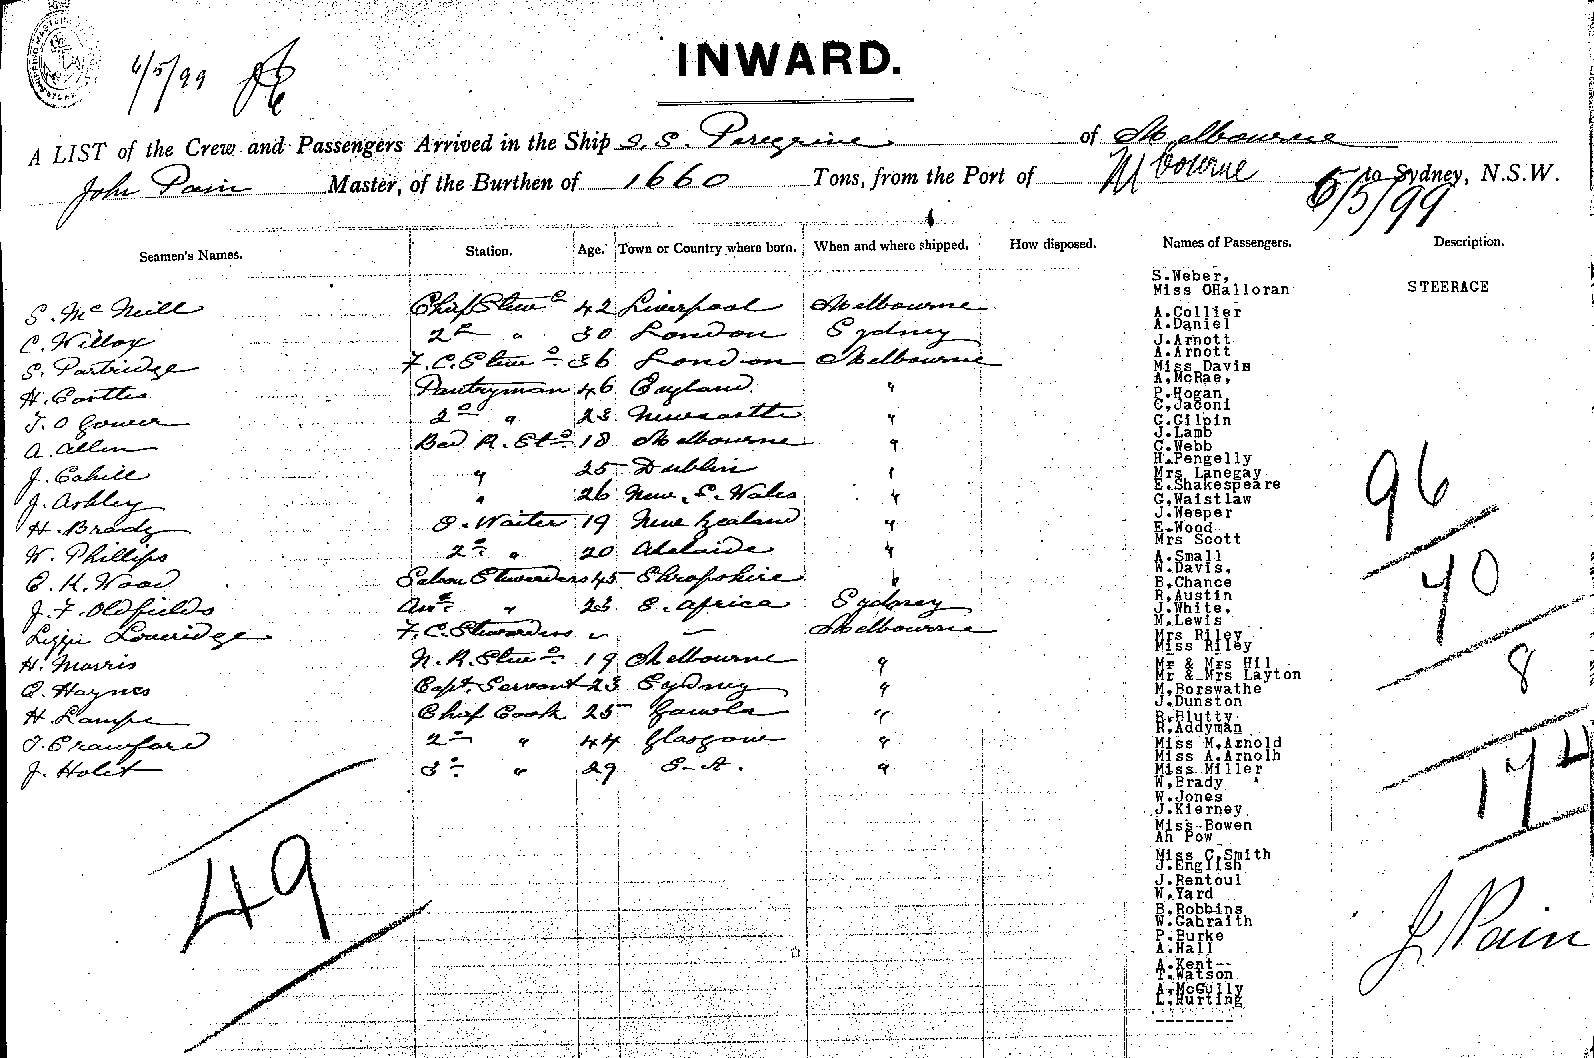 6/5/99
INWARD.
A LIST of the Crew and Passengers Arrived in the Ship S.S. Peregrine of Melbourne
John Pain Master, of the Burthen of 1660 Tons, from the Port of Melbourne to Sydney, N.S.W.
6/5/99
Seamen's Names. Station. Age. Town or Country where born. When and where shipped. How disposed. Names of Passengers. Description.
S. McNeill Chief Stewd 42 Liverpool Melbourne
C. Willox 2nd " 30 London Sydney
S. Partridge F.C. Stewd 36 London Melbourne
H. Pantryman 46 England "
T. O Gower 2nd " 23 Newcastle "
A. Allen Bed R. Std 18 Melbourne "
J. Cahill " 25 Dublin "
J. Ashley " 26 New S. Wales "
H. Brady S. Waiter 19 New Zealand "
W. Phillips 2nd " 20 Adelaide "
E. K. Wood Saloon Stewardess 45 Shropshire "
J. F. Oldfields Asst " 23 S. Africa Sydney
Lizzie Loveridge F.C. Stewardess " — Melbourne
H. Morris N.R. Stewd 19 Melbourne "
C. Haynes Capt. Servant 23 Sydney "
H Lampe Chief Cook 25 Gawler "
T. Crawford 2nd " 44 Glasgow "
J. Holst 3rd " 29 S.A. "
49
S.Weber,
Miss OHalloran STEERAGE
A.Collier
A.Daniel
J.Arnott
A.Arnott
Miss Davis
A.McRae,
P.Hogan
C.Jaconi
G.Gilpin
J.Lamb
C.Webb
H.Pengelly
Mrs Lanegay
E.Shakespeare
G.Waistlaw
J.Weeper
E.Wood
Mrs Scott
A.Small
W.Davis,
B.Chance
R.Austin
J.White,
M.Lewis
Mrs Riley
Miss Riley
Mr & Mrs Hil
Mr & Mrs Layton
M.Borswathe
J.Dunston
B.Blutty
R.Addyman
Miss M.Arnold
Miss A.Arnolh
Miss Miller
W.Brady
W.Jones
J.Kierney
Miss Bowen
Ah Pow
Miss C.Smith
J.English
J.Rentoul
W.Yard
B.Robbins
W.Gabraith
P.Burke
A.Hall
A.Kent--
T.Watson
A.McGully
L.Hurting
---------
96
70
8
174
J Pain